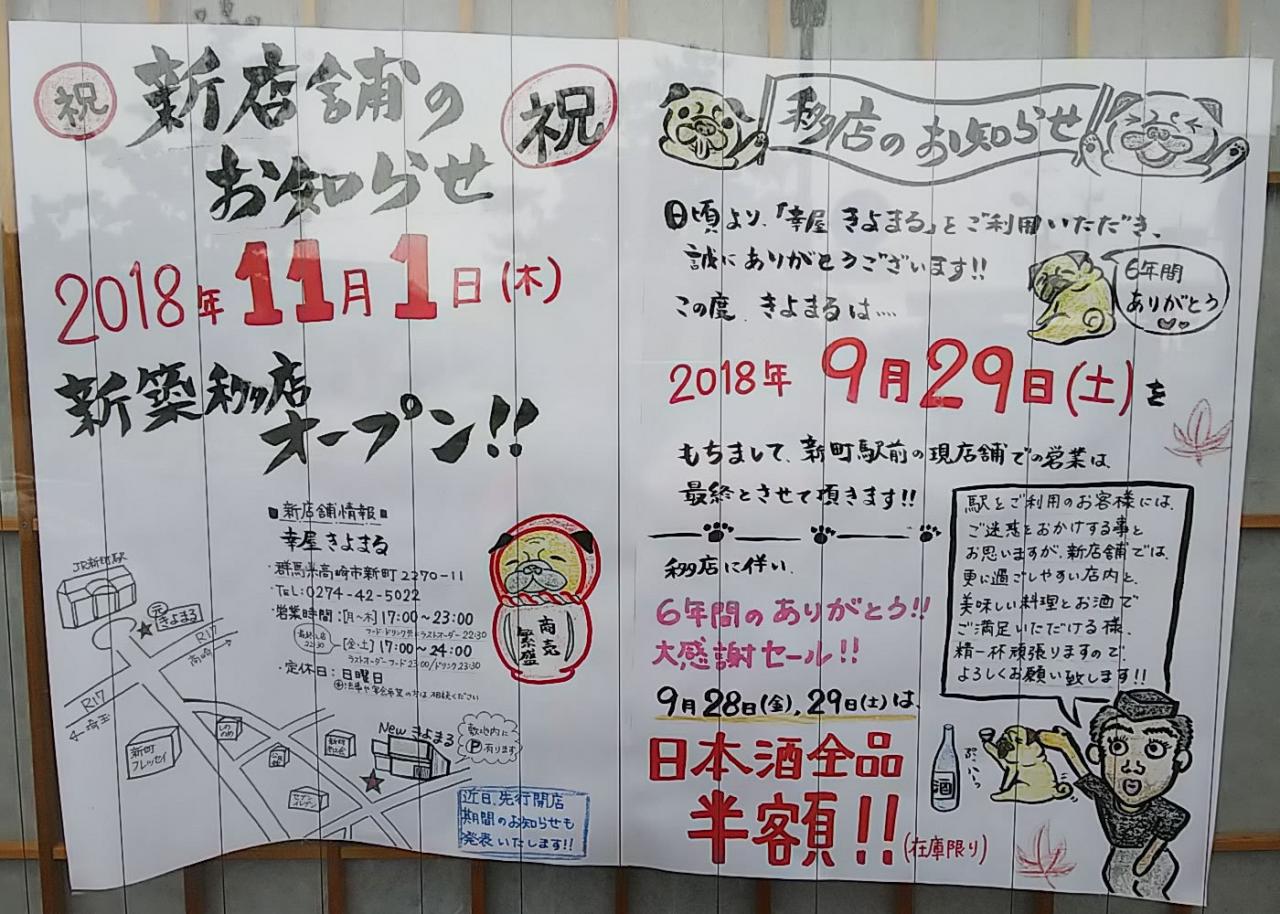 祝
新店舗の
祝
お知らせ
2018年11月1日(木)
新築移店
オープン!!
■新店舗情報■
幸屋 きよまる
・群馬県高崎市新町2270-11
・TEL:0274-42-5022
・営業時間:[月〜木]17:00〜23:00
フード・ドリンク共ラストオーダー22:30
最終入店
22:30
[金・土]17:00〜24:00
ラストオーダーフード23:00/ドリンク23:30
・定休日:日曜日
JR新町駅
元
きよまる
R17
高崎
R17
埼玉
新町
フレッセイ
しの
のめ
新町
セブン
イレブン
New きよまる
敷地内に
Ⓟ
有ります
商売
繁盛
近日、先行開店
期間のお知らせも
発表いたします!!
移店のお知らせ
日頃より、「幸屋 きよまる」をご利用いただき、
誠にありがとうございます!!
この度、きよまるは….
6年間
ありがとう
2018年 9月29日(土)を
もちまして、新町駅前の現店舗での営業は、
最終とさせて頂きます!!
移店に伴い、
6年間のありがとう!!
大感謝セール!!
9月28日(金),29日(土)は、
日本酒全品
半額!!(在庫限り)
駅をご利用のお客様には、
ご迷惑をおかけする事と
お思いますが、新店舗では、
更に過ごしやすい店内と、
美味しい料理とお酒で
ご満足いただける様、
精一杯頑張りますので、
よろしくお願い致します!!
酒